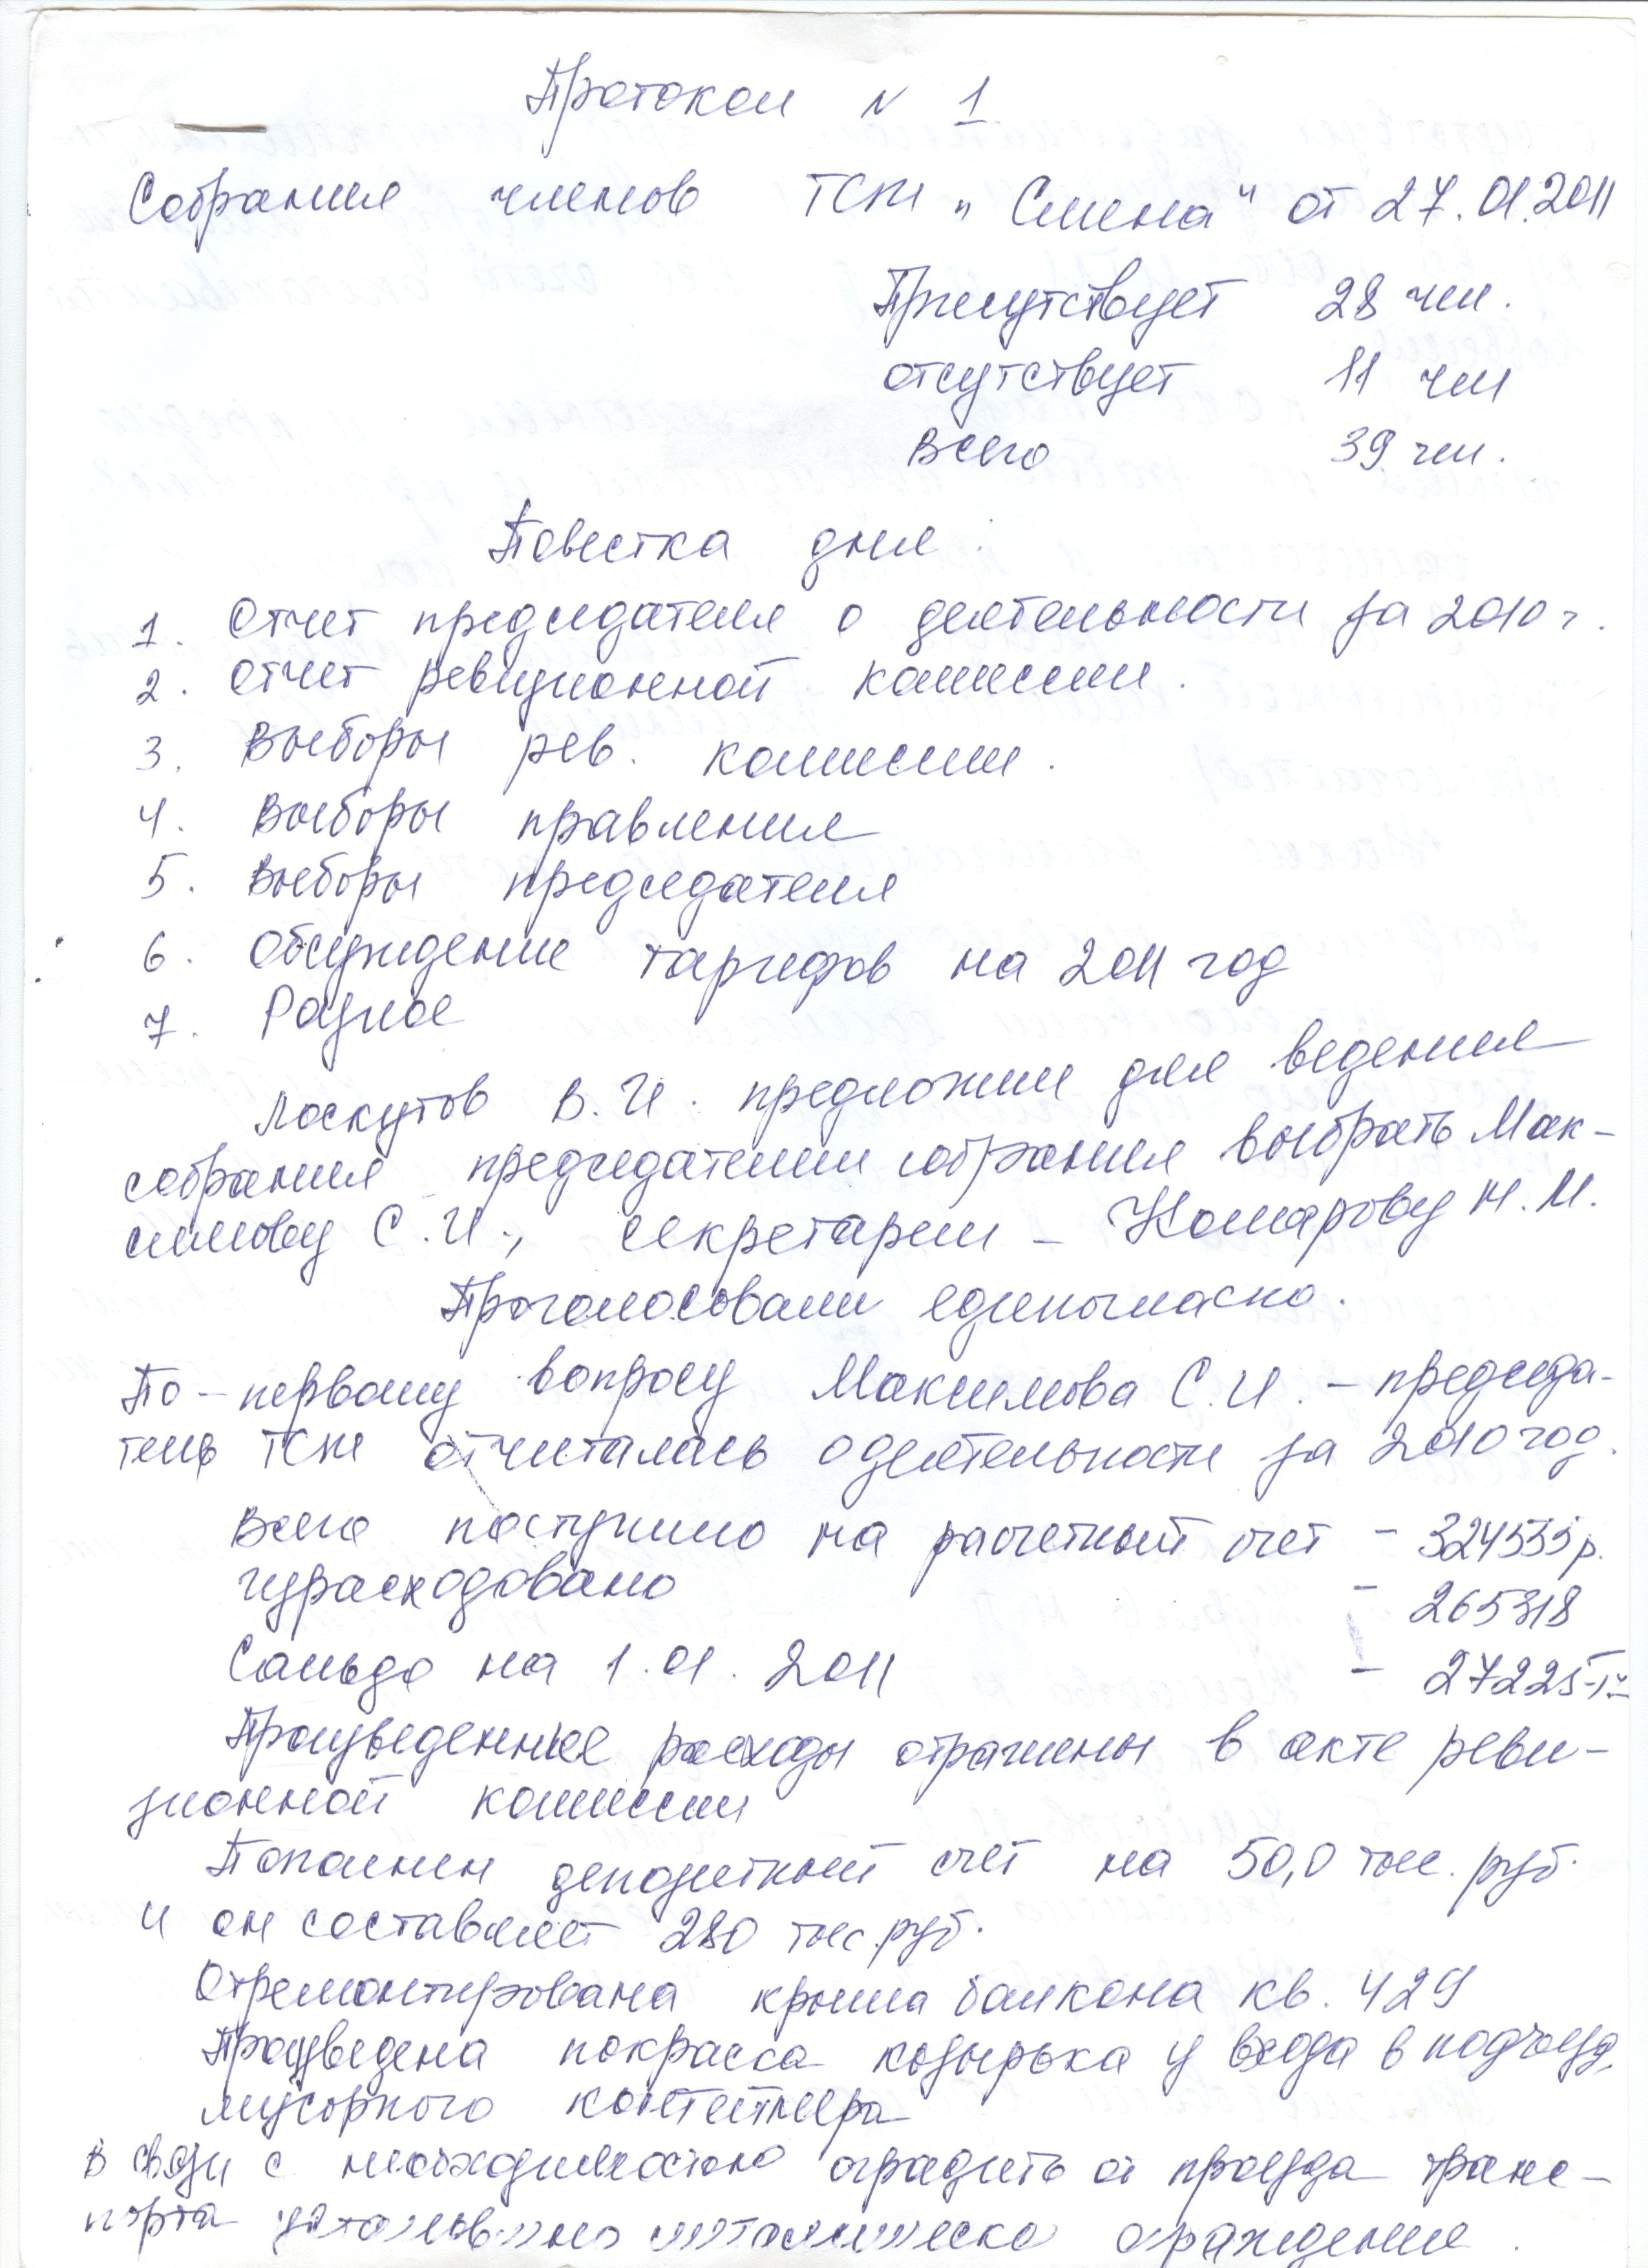 Протокол N 1
Собрания членов ТСЖ „Смена" от 27.01.2011
Присутствует 28 чел.
отсутствует 11 чел
Всего 39 чел.
Повестка дня:
1. Отчет председателя о деятельности за 2010 г.
2. Отчет ревизионной комиссии.
3. Выборы рев. комиссии.
4. Выборы правления
5. Выборы председателя
6. Обсуждение тарифов на 2011 год
7. Разное
Лоскутов В.И. предложил для ведения
собрания председателем собрания выбрать Мак-
симову С.И., секретарем – Комарову Н.М.
Проголосовали единогласно.
По-первому вопросу Максимова С.И. – председа-
тель ТСЖ отчиталась о деятельности за 2010 год.
Всего поступило на расчетный счет – 324535 р.
израсходовано – 265318
Сальдо на 1.01.2011 – 27225
Произведенные расходы отражены в акте реви-
зионной комиссии
Пополнен депозитный счет на 50,0 тыс. руб.
и он составляет 280 тыс. руб.
Отремонтирована крыша балкона кв. 429
Произведена покраска козырька у входа в подъезд,
мусорного контейнера
В связи с необходимостью оградить от проезда транс-
порта установлено металлическо ограждение.